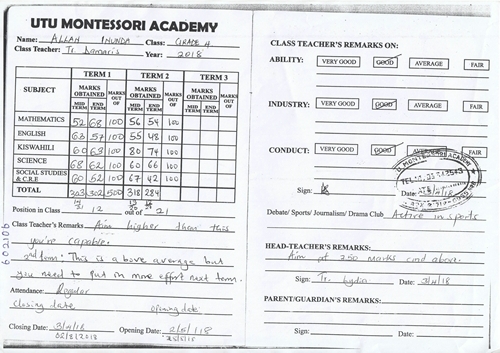 UTU MONTESSORI ACADEMY
Name: ALLAN INUNDA Class: GRADE 4
Class Teacher: Tr. Damaris Year: 2018
SUBJECT TERM 1 TERM 2 TERM 3
MARKS OBTAINED MARKS OUT OF MARKS OBTAINED MARKS OUT OF MARKS OBTAINED MARKS OUT OF
MID TERM END TERM MID TERM END TERM MID TERM END TERM
MATHEMATICS 52 68 100 56 54 100
ENGLISH 63 57 100 55 48 100
KISWAHILI 60 63 100 80 74 100
SCIENCE 68 62 100 60 66 100
SOCIAL STUDIES & C.R.E 60 52 100 67 42 100
TOTAL 303 302 500 318 284
Position in Class 12 out of 21
Class Teacher's Remarks Aim higher than this
you're capable.
2nd term: This is a above average but
you need to put in more effort next term.
Attendance: Regular
closing date opening date
Closing Date: 3/4/18 Opening Date: 2/5/18
CLASS TEACHER'S REMARKS ON:
ABILITY: VERY GOOD GOOD AVERAGE FAIR
INDUSTRY: VERY GOOD GOOD AVERAGE FAIR
CONDUCT: VERY GOOD GOOD AVERAGE FAIR
Sign: Date: 3/4/18
Debate/ Sports/ Journalism/ Drama Club Active in sports
HEAD-TEACHER'S REMARKS:
Aim at 350 marks and above.
Sign: Tr. Lydia Date: 3/4/18
PARENT/GUARDIAN'S REMARKS:
Sign: Date: